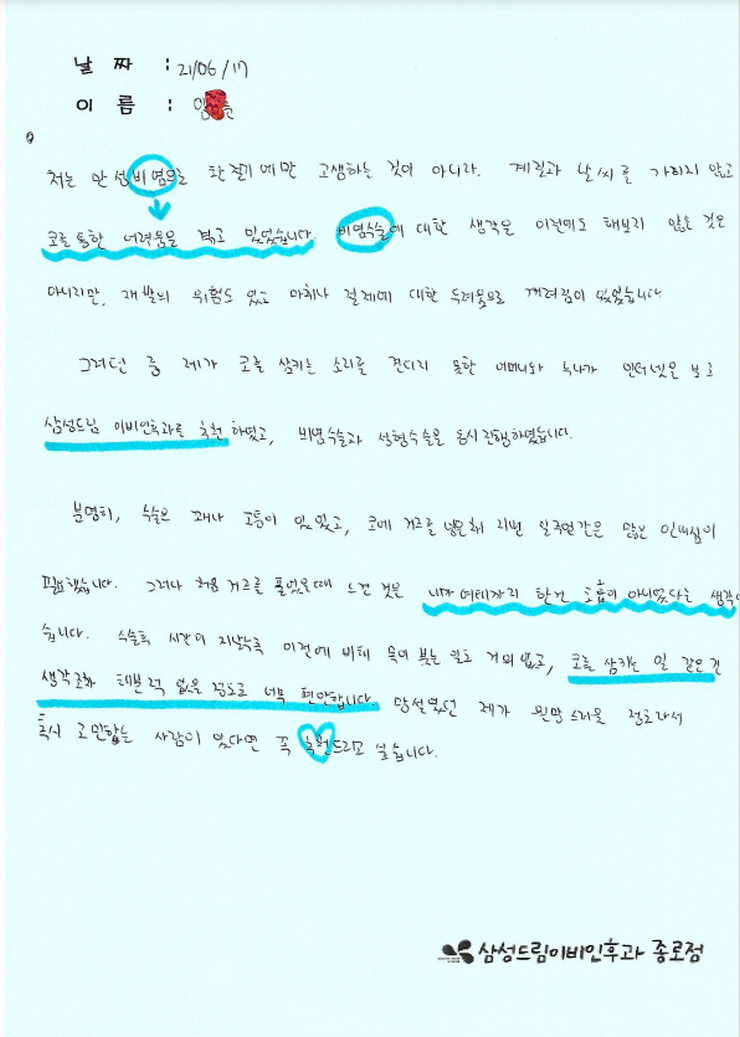 날 짜 : 21/06/17
이 름 : 임
저는 만성비염으로 환절기에만 고생하는 것이 아니라, 계절과 날씨를 가리지 않고
코를 통한 어려움을 겪고 있었습니다. 비염수술에 대한 생각은 이전에도 해보지 않은 것은
아니지만, 재발의 위험도 있고 마취나 절제에 대한 두려움으로 꺼려짐이 있었습니다.
그러던 중 제가 코를 삼키는 소리를 견디지 못한 어머니와 누나가 인터넷으로
삼성드림 이비인후과를 추천하였고, 비염수술과 성형수술을 동시진행하였습니다.
분명히, 수술은 꽤나 고통이 있었고, 코에 거즈를 넣은채 일주일간은 많은 인내심이
필요했습니다. 그러나 처음 거즈를 풀었을때 느낀 것은 내가 여태까지 한건 호흡이 아니었다는 생각이
습니다. 수술후 시간이 지날수록 이전에 비해 목이 붓는 일도 거의 없고, 코를 삼키는 일 같은건
생각조차 해본적 없을 정도로 너무 편안합니다. 망설였던 제가 원망스러울 정도라서
혹시 고민하는 사람이 있다면 꼭 추천드리고 싶습니다.
삼성드림이비인후과 종로점